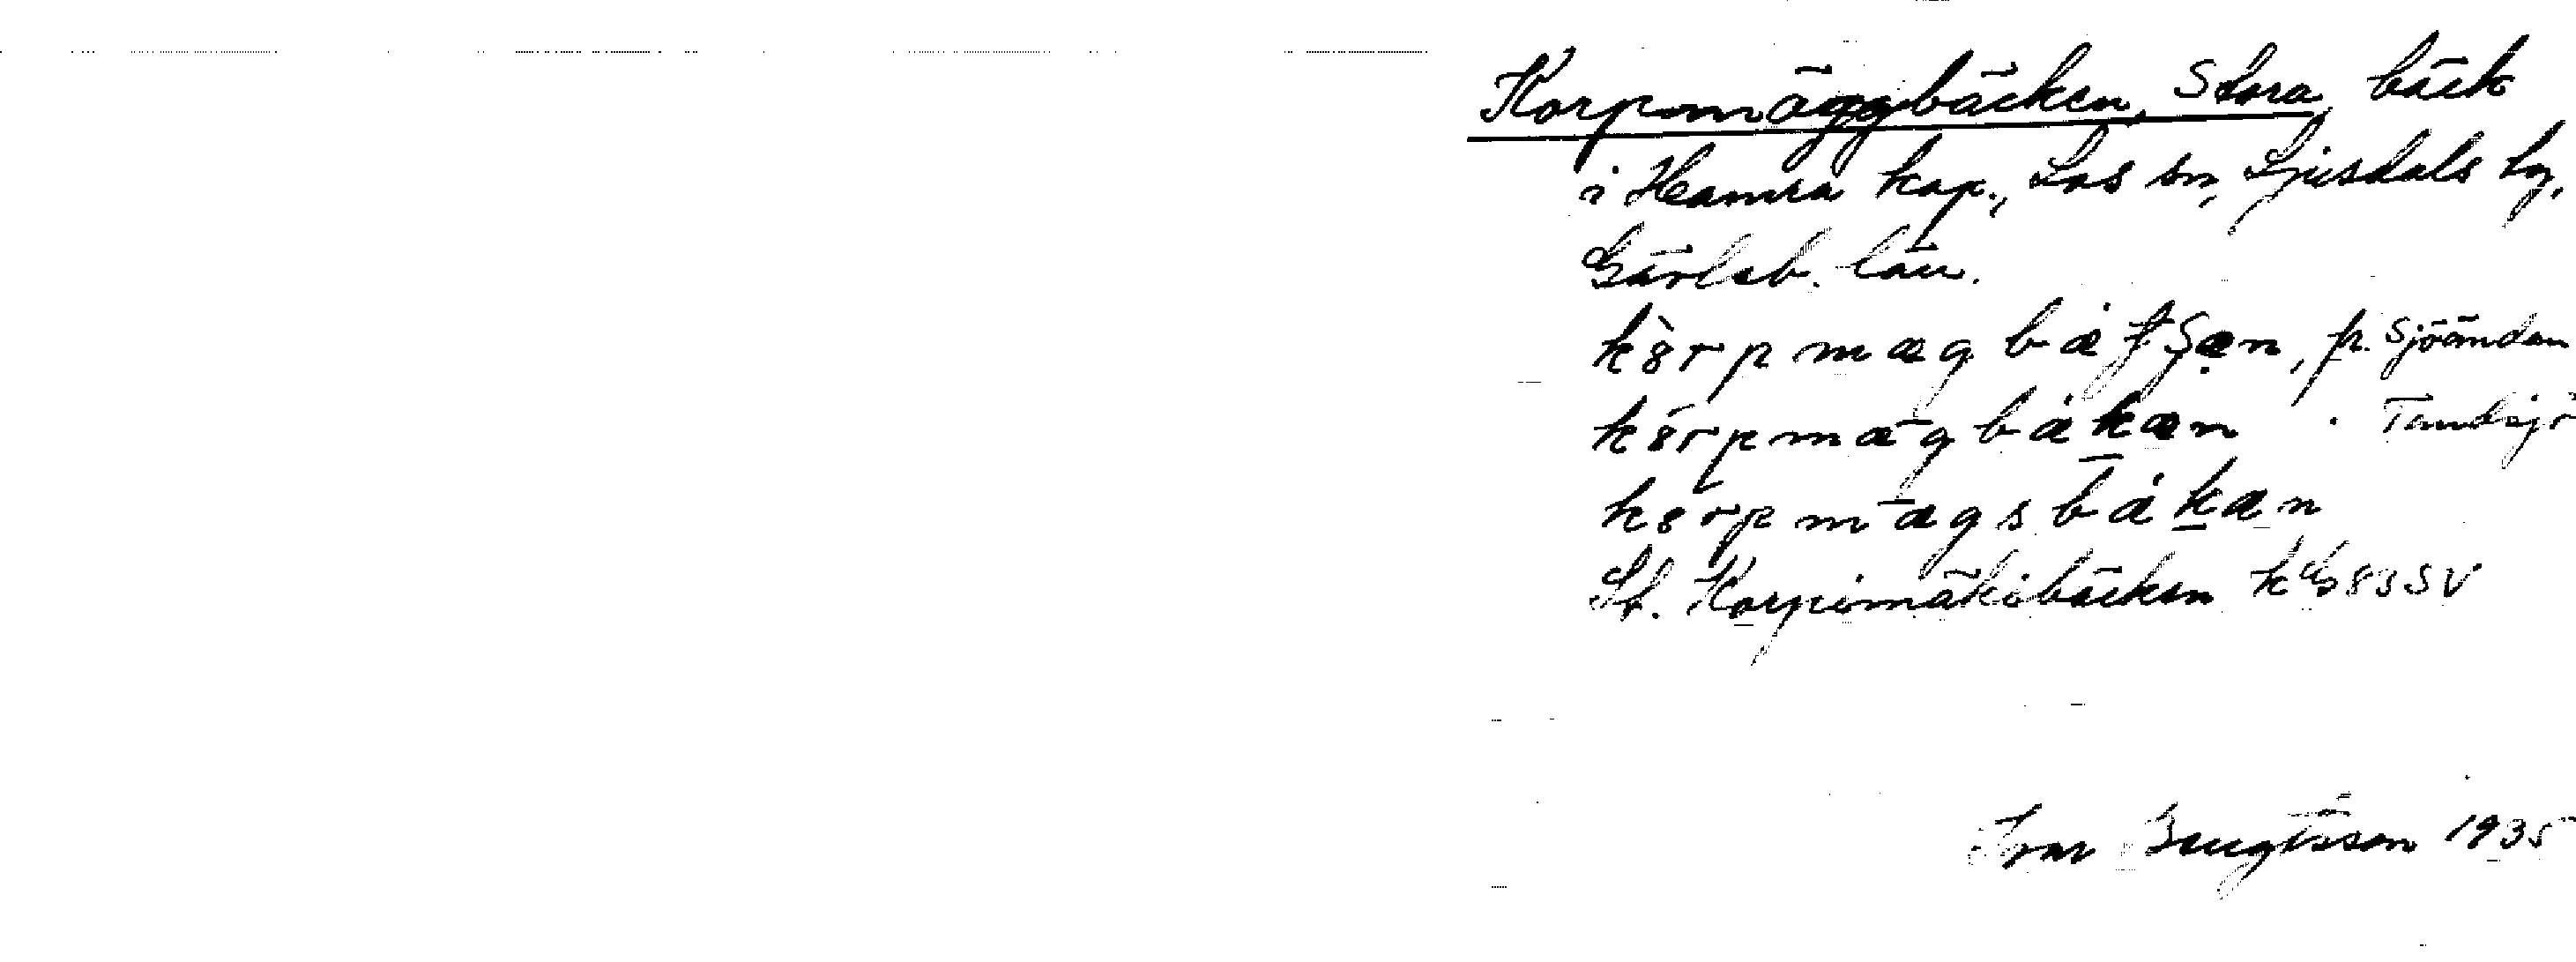 Korpmäggbäcken, Stora, bäck
i Hamra kap., Los sn, Ljusdals tg,
Gävleb. län.
kòrpmægbæ̀tʃæn, fr. Sjöändan
kòrpmægbækæn . Tandsjö
korpmægsbækæn
St. Korpimäkibäcken
Ivar Bengtsson 1935